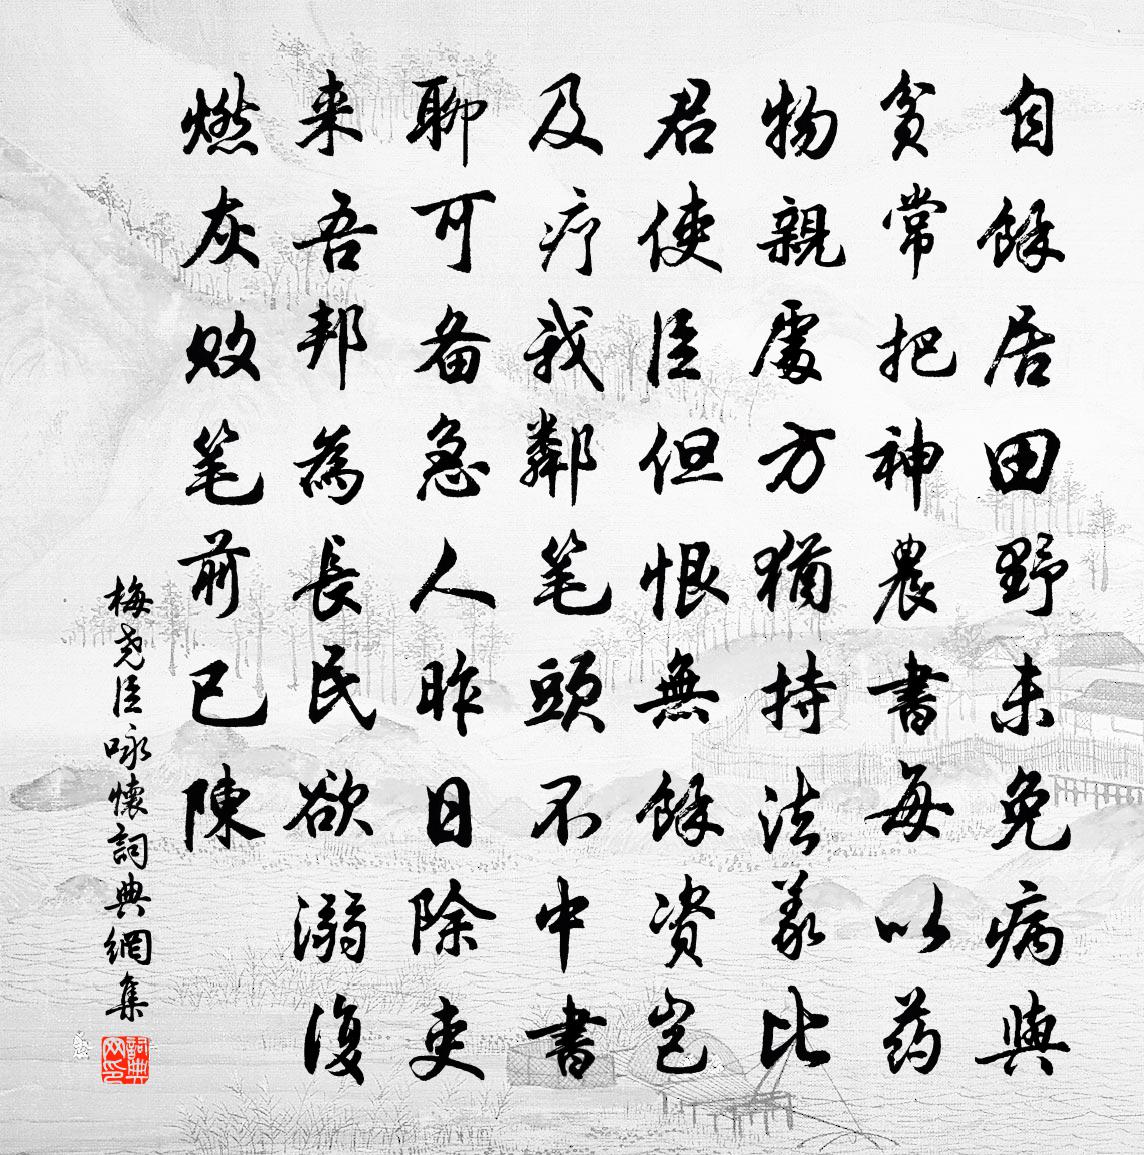 自餘居田野未免病與
貧常把神農書每以药
物親處方猶持法義比
君使臣但恨無餘资岂
及疗我鄰笔頭不中書
聊可备急人昨日除吏
来吾邦為長民欲溺復
燃灰败笔前已陳
梅尧臣咏懷詞典網集
詞典网印